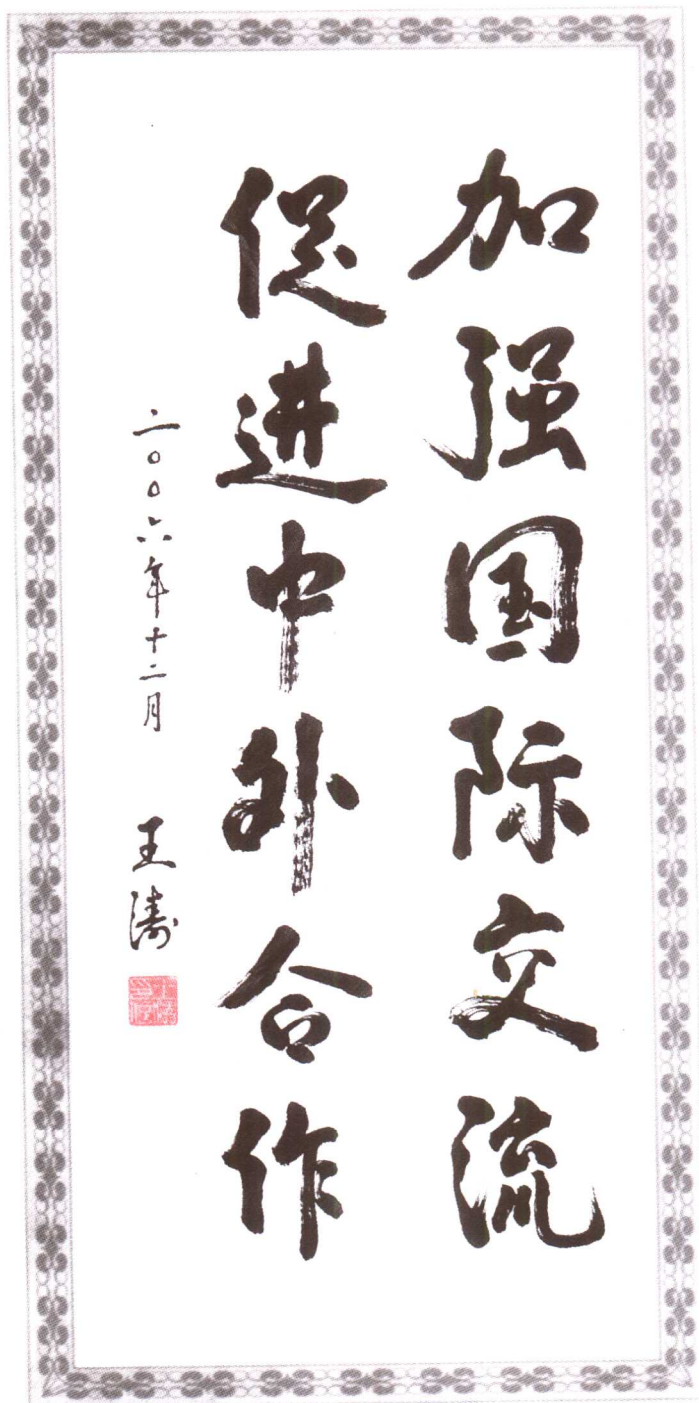 加强国际交流
促进中外合作
二〇〇六年十二月
王涛